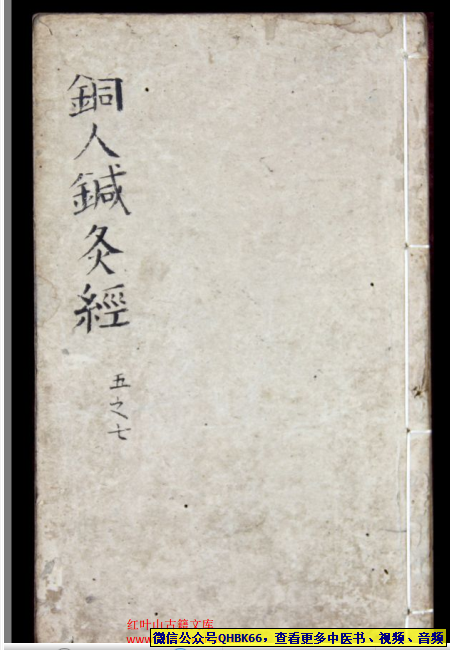 銅人鍼灸經
五之七
红叶山古籍文库
www.
微信公众号QHBK66，查看更多中医书、视频、音频